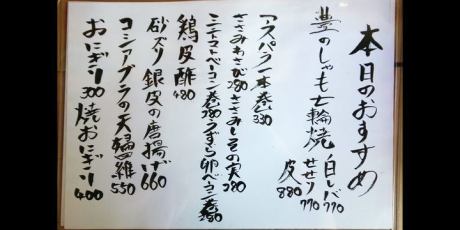 本日のおすすめ
豊のしゃも七輪焼 白レバ770
せせり770
皮880
アスパラ一本巻き330
ささみわさび280 ささみしその実280
ミニトマトベーコン巻280 うずら卵ベーコン巻280
鶏皮酢480
砂ズリ銀皮の唐揚げ660
コシアブラの天婦羅550
おにぎり300 焼おにぎり400